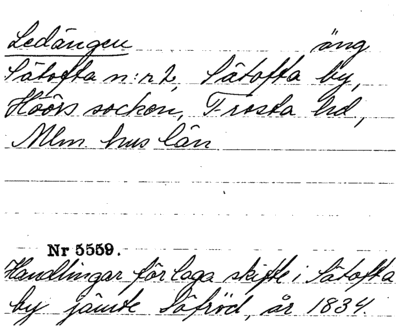 Ledängen äng
Sätofta n:r 2, Sätofta by,
Höörs socken, Frosta hd,
Mlm. hus län
Nr 5559.
Handlingar för laga skifte i Sätofta
by jämte Söfröd, år 1834.